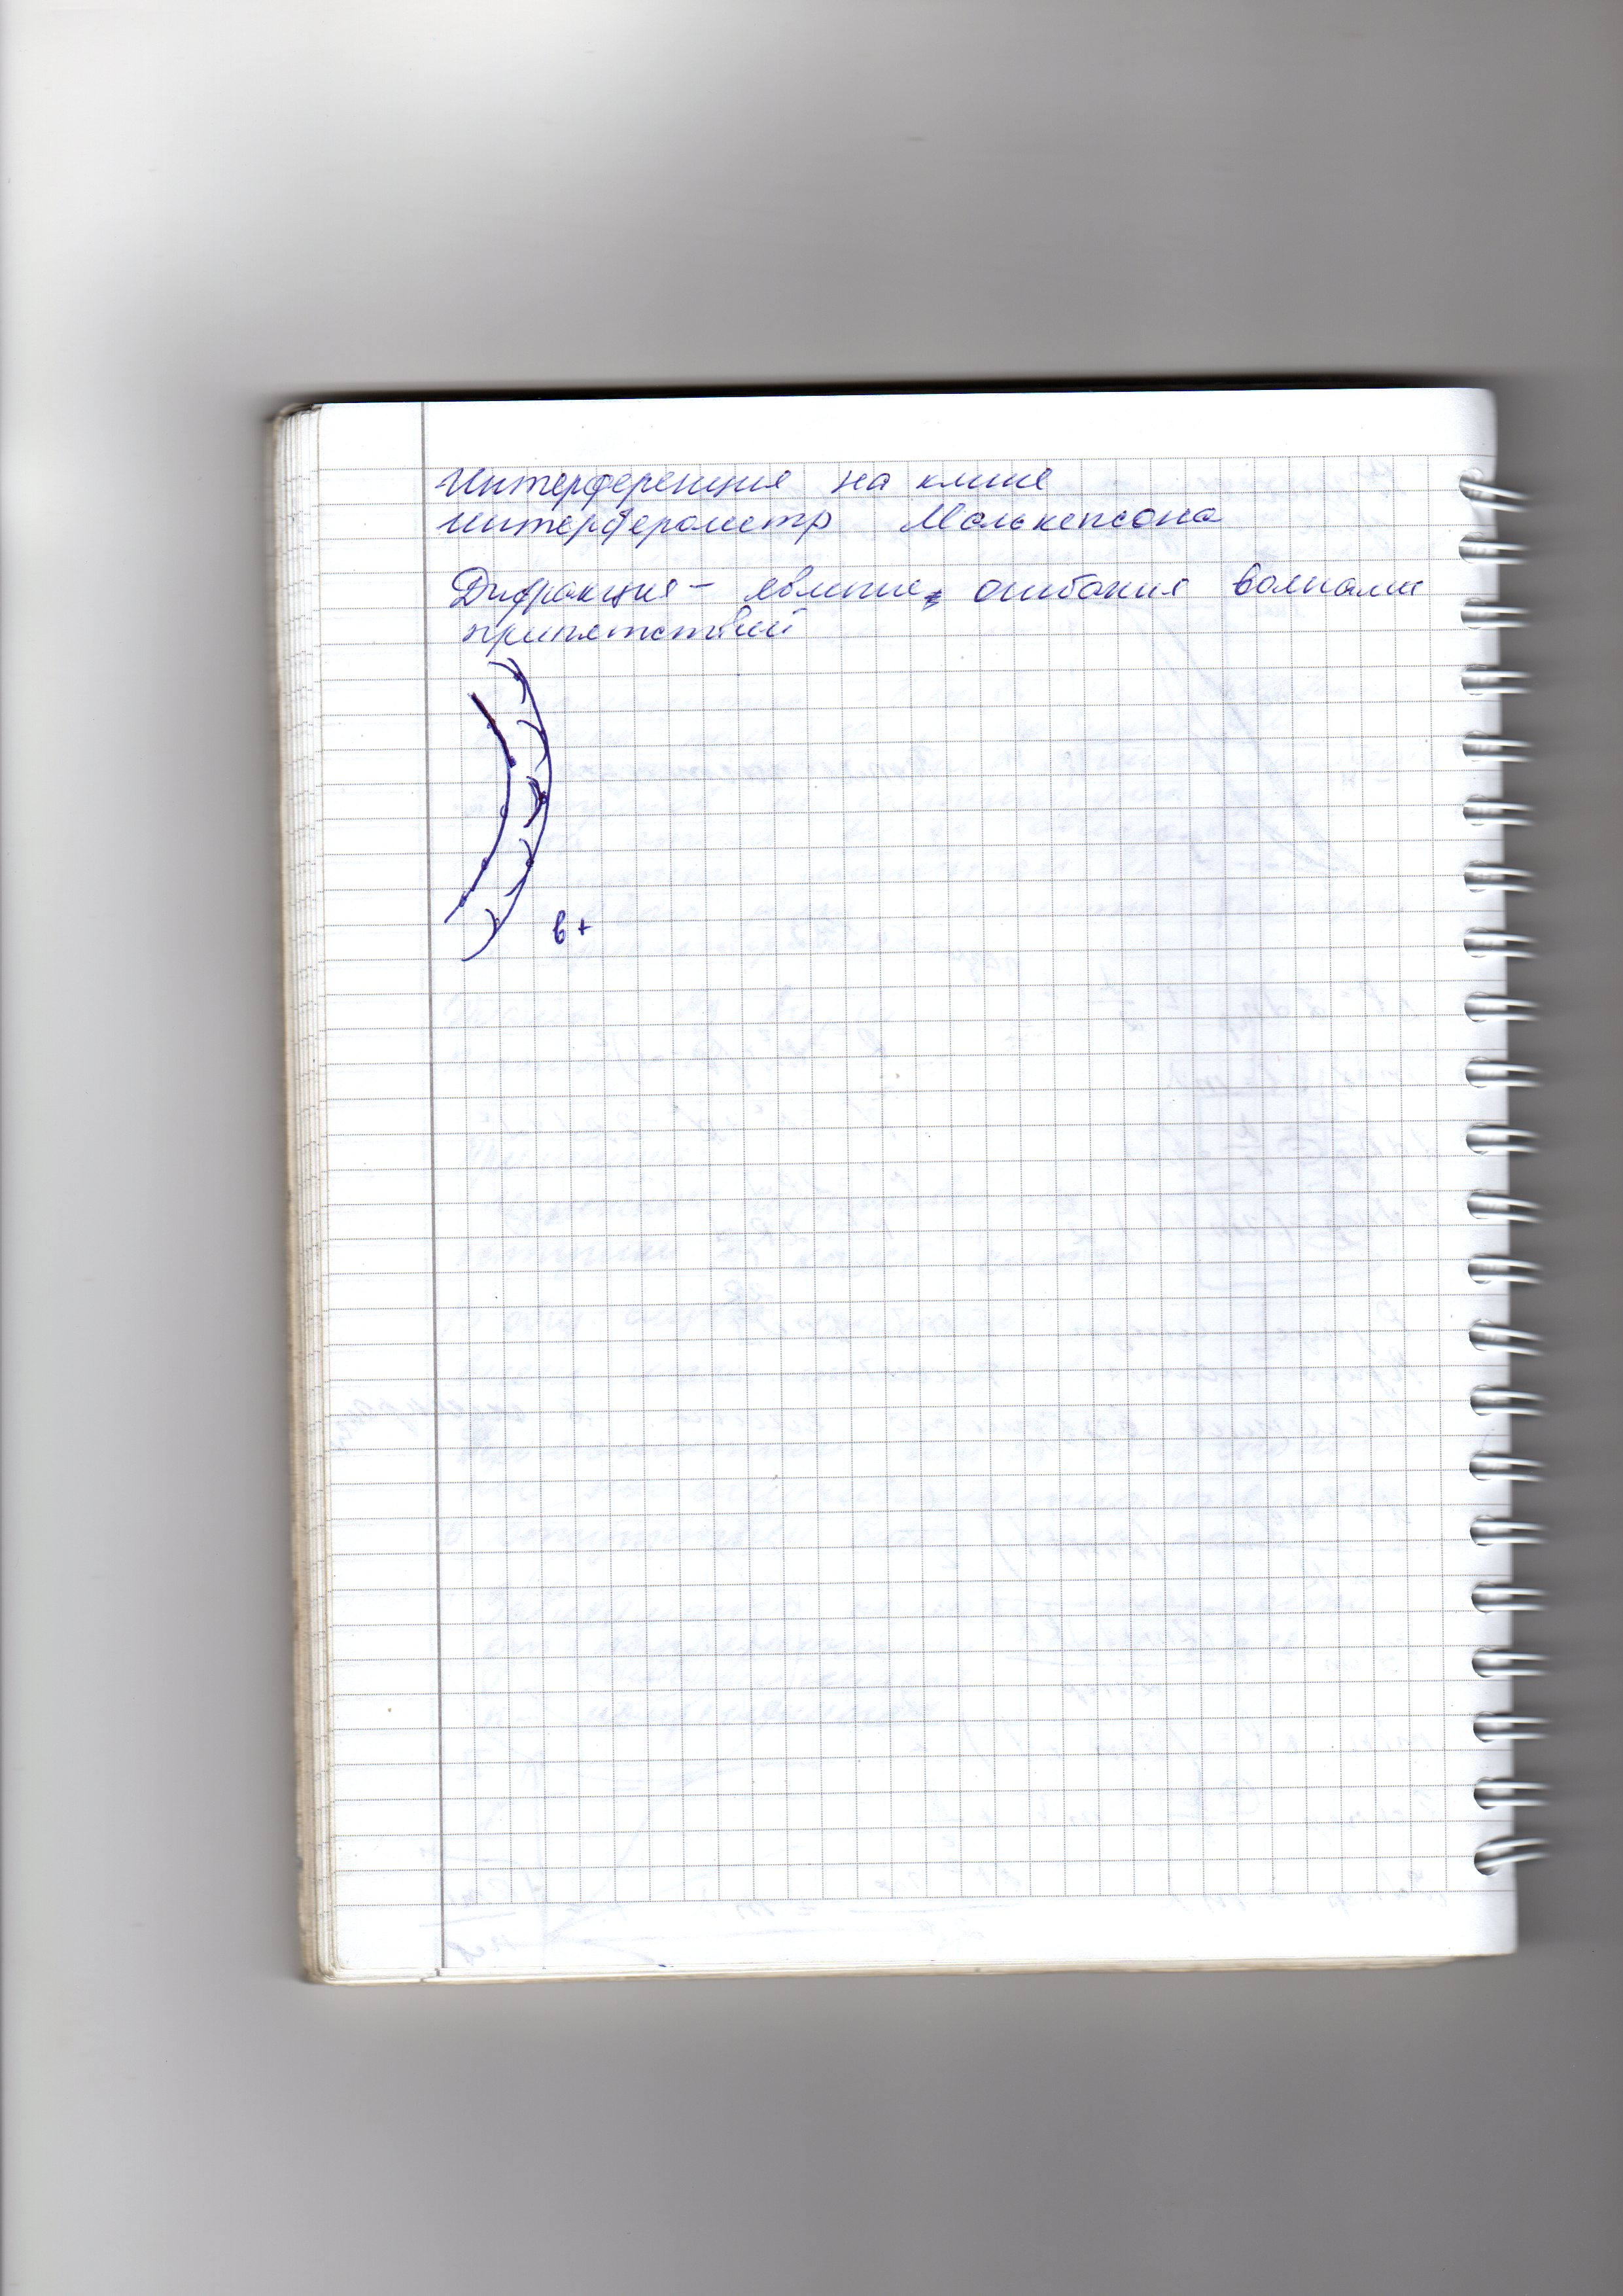 Интерференция на клине
интерферометр Малькепсона
Дифракция - явление огибания волнами
препятствий
в +